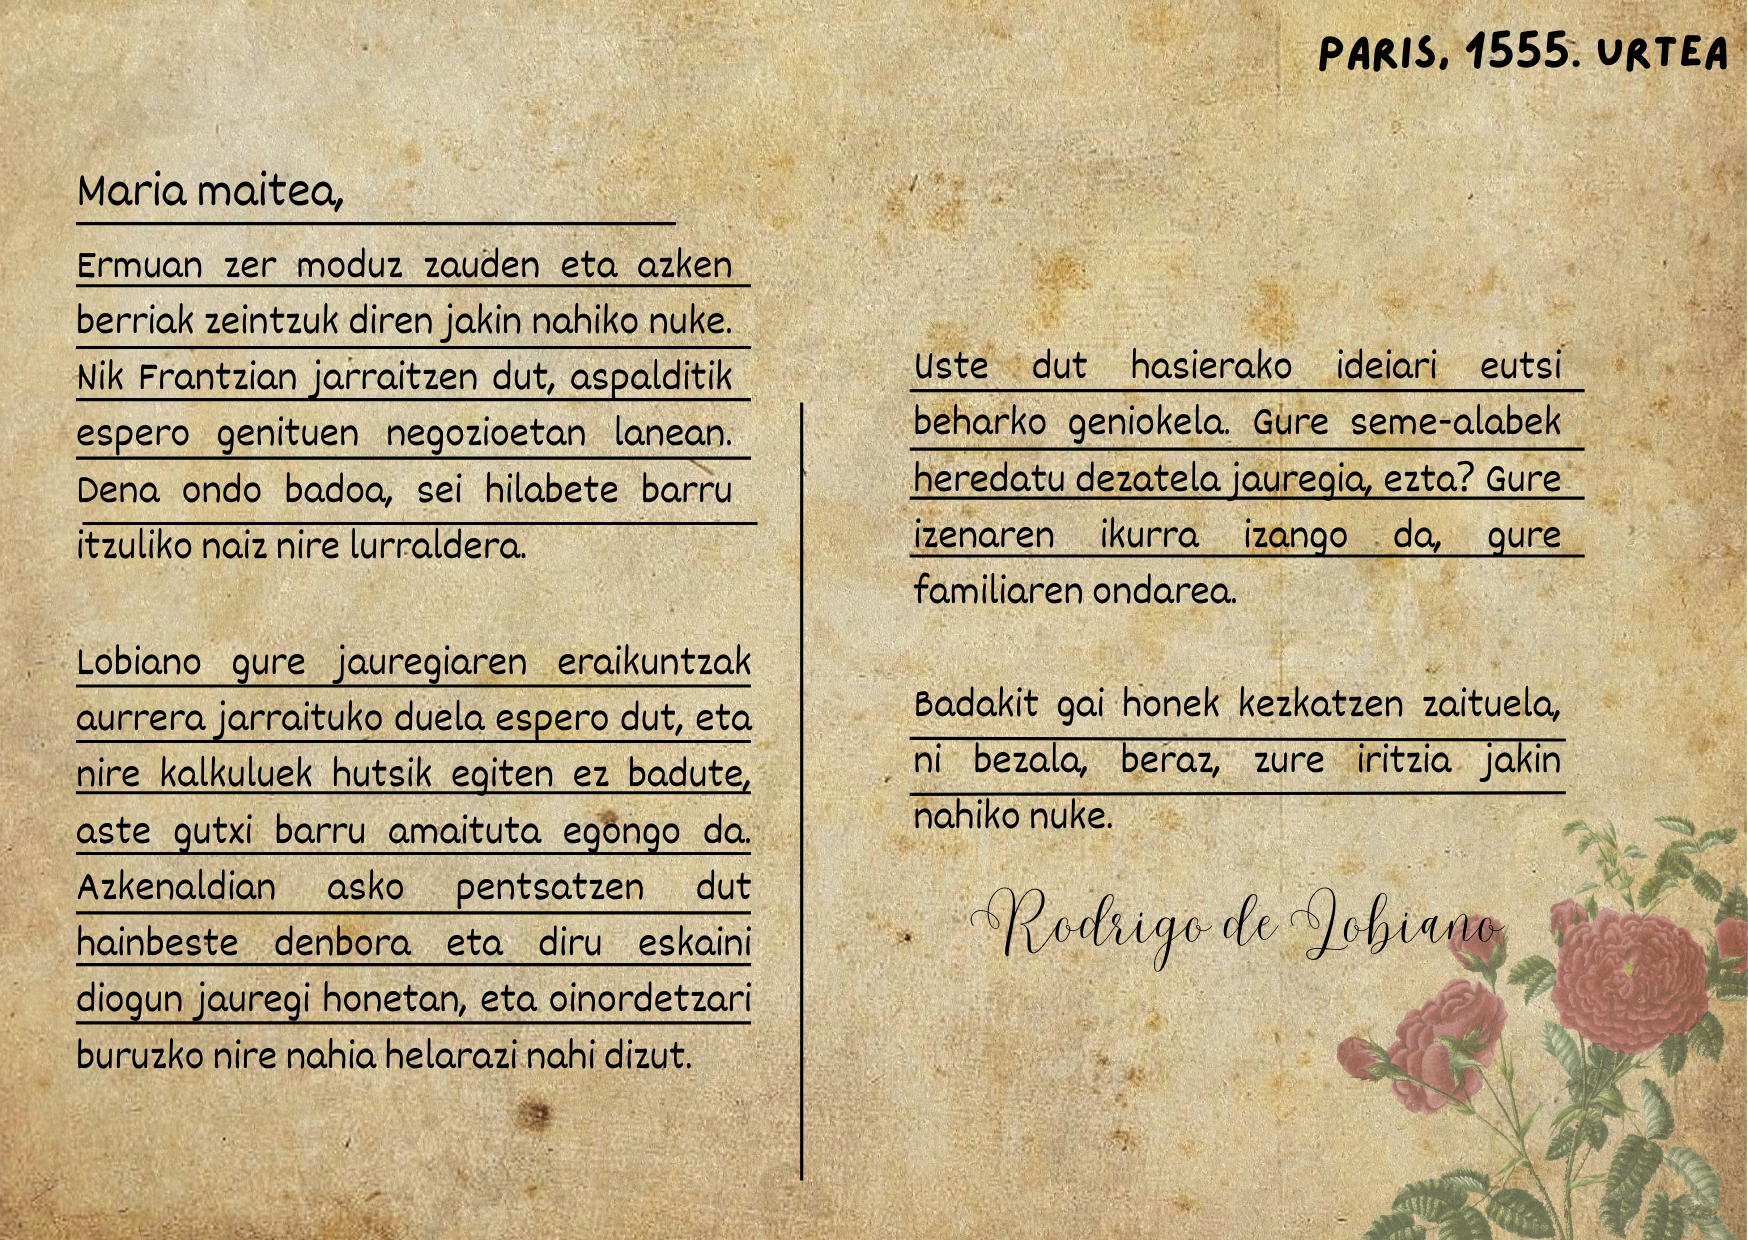 PARIS, 1555. URTEA
Maria maitea,
Ermuan zer moduz zauden eta azken
berriak zeintzuk diren jakin nahiko nuke.
Nik Frantzian jarraitzen dut, aspalditik
espero genituen negozioetan lanean.
Dena ondo badoa, sei hilabete barru
itzuliko naiz nire lurraldera.
Lobiano gure jauregiaren eraikuntzak
aurrera jarraituko duela espero dut, eta
nire kalkuluek hutsik egiten ez badute,
aste gutxi barru amaituta egongo da.
Azkenaldian asko pentsatzen dut
hainbeste denbora eta diru eskaini
diogun jauregi honetan, eta oinordetzari
buruzko nire nahia helarazi nahi dizut.
Uste dut hasierako ideiari eutsi
beharko geniokela. Gure seme-alabek
heredatu dezatela jauregia, ezta? Gure
izenaren ikurra izango da, gure
familiaren ondarea.
Badakit gai honek kezkatzen zaituela,
ni bezala, beraz, zure iritzia jakin
nahiko nuke.
Rodrigo de Lobiano